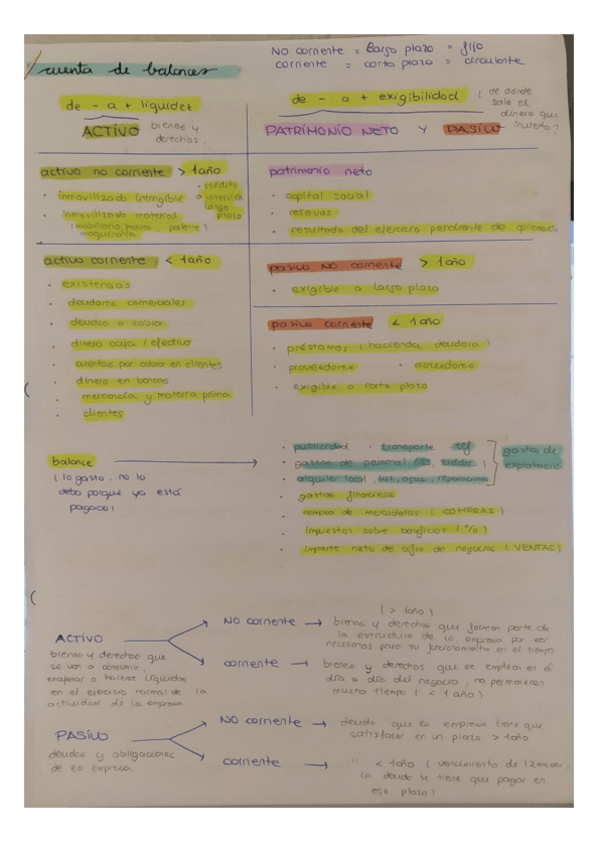 NO corriente = Largo plazo = fijo
corriente = corto plazo = circulante
cuenta de balances
de - a + liquidez
ACTIVO bienes y derechos.
de - a + exigibilidad
¿ de donde sale el dinero que invierto?
PATRIMONIO NETO Y PASIVO
activo no corriente > 1año
• inmovilizado intangible
• inmovilizado material
( mobiliario, marca, patente )
maquinaria
• crédito
o interción
largo
plazo
patrimonio neto
• capital social
• reservas
• resultado del ejercicio pendiente de aplicación
activo corriente < 1año
• existencias
• deudores comerciales
• deudas a cobrar
• dinero caja / efectivo
• cuentas por cobrar en clientes
• dinero en bancos
• mercancía y materia prima
• clientes
pasivo NO corriente > 1año
• exigible a largo plazo
pasivo corriente < 1año
• préstamos ( hacienda deudora )
• proveedores • acreedores
• exigible a corto plazo
balance
( lo gasto, no lo
debo porque ya está
pagado )
• publicidad • transporte
• gastos de personal
• alquile local, luz, agua, reparaciones
gastos de
explotación
• gastos financieros
• compra de mercaderías ( COMPRAS )
• impuestos sobre beneficios ( % )
• importe neto de cifra de negocios ( VENTAS )
ACTIVO
bienes y derechos que
se van a consumir,
enajenar o hacerse líquidos
en el ejercicio normal de la
actividad de la empresa
NO corriente → ( > 1año )
bienes y derechos que forman parte de
la estructura de la empresa por ser
necesarios para su funcionamiento en el tiempo
corriente → bienes y derechos que se emplean en el
día a día del negocio, no permanecen
mucho tiempo ( < 1 año )
PASIVO
deudas y obligaciones
de la empresa
NO corriente → deuda que la empresa tiene que
satisfacer en un plazo > 1año
corriente → " < 1año ( vencimiento de 12 meses,
la deuda se tiene que pagar en
ese plazo )